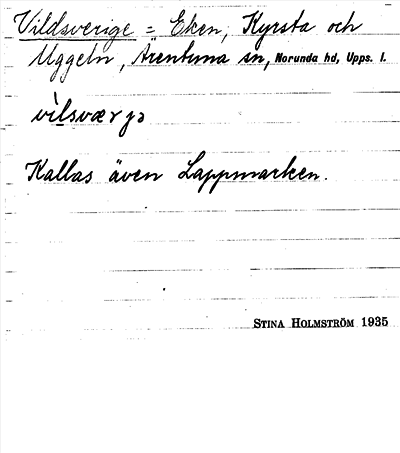 Vildsverige = Eken, Kyrsta och
Uggeln, Ärentuna sn, Norunda hd, Upps. l.
vìlsværjə
Kallas även Lappmarken.
STINA HOLMSTRÖM 1935